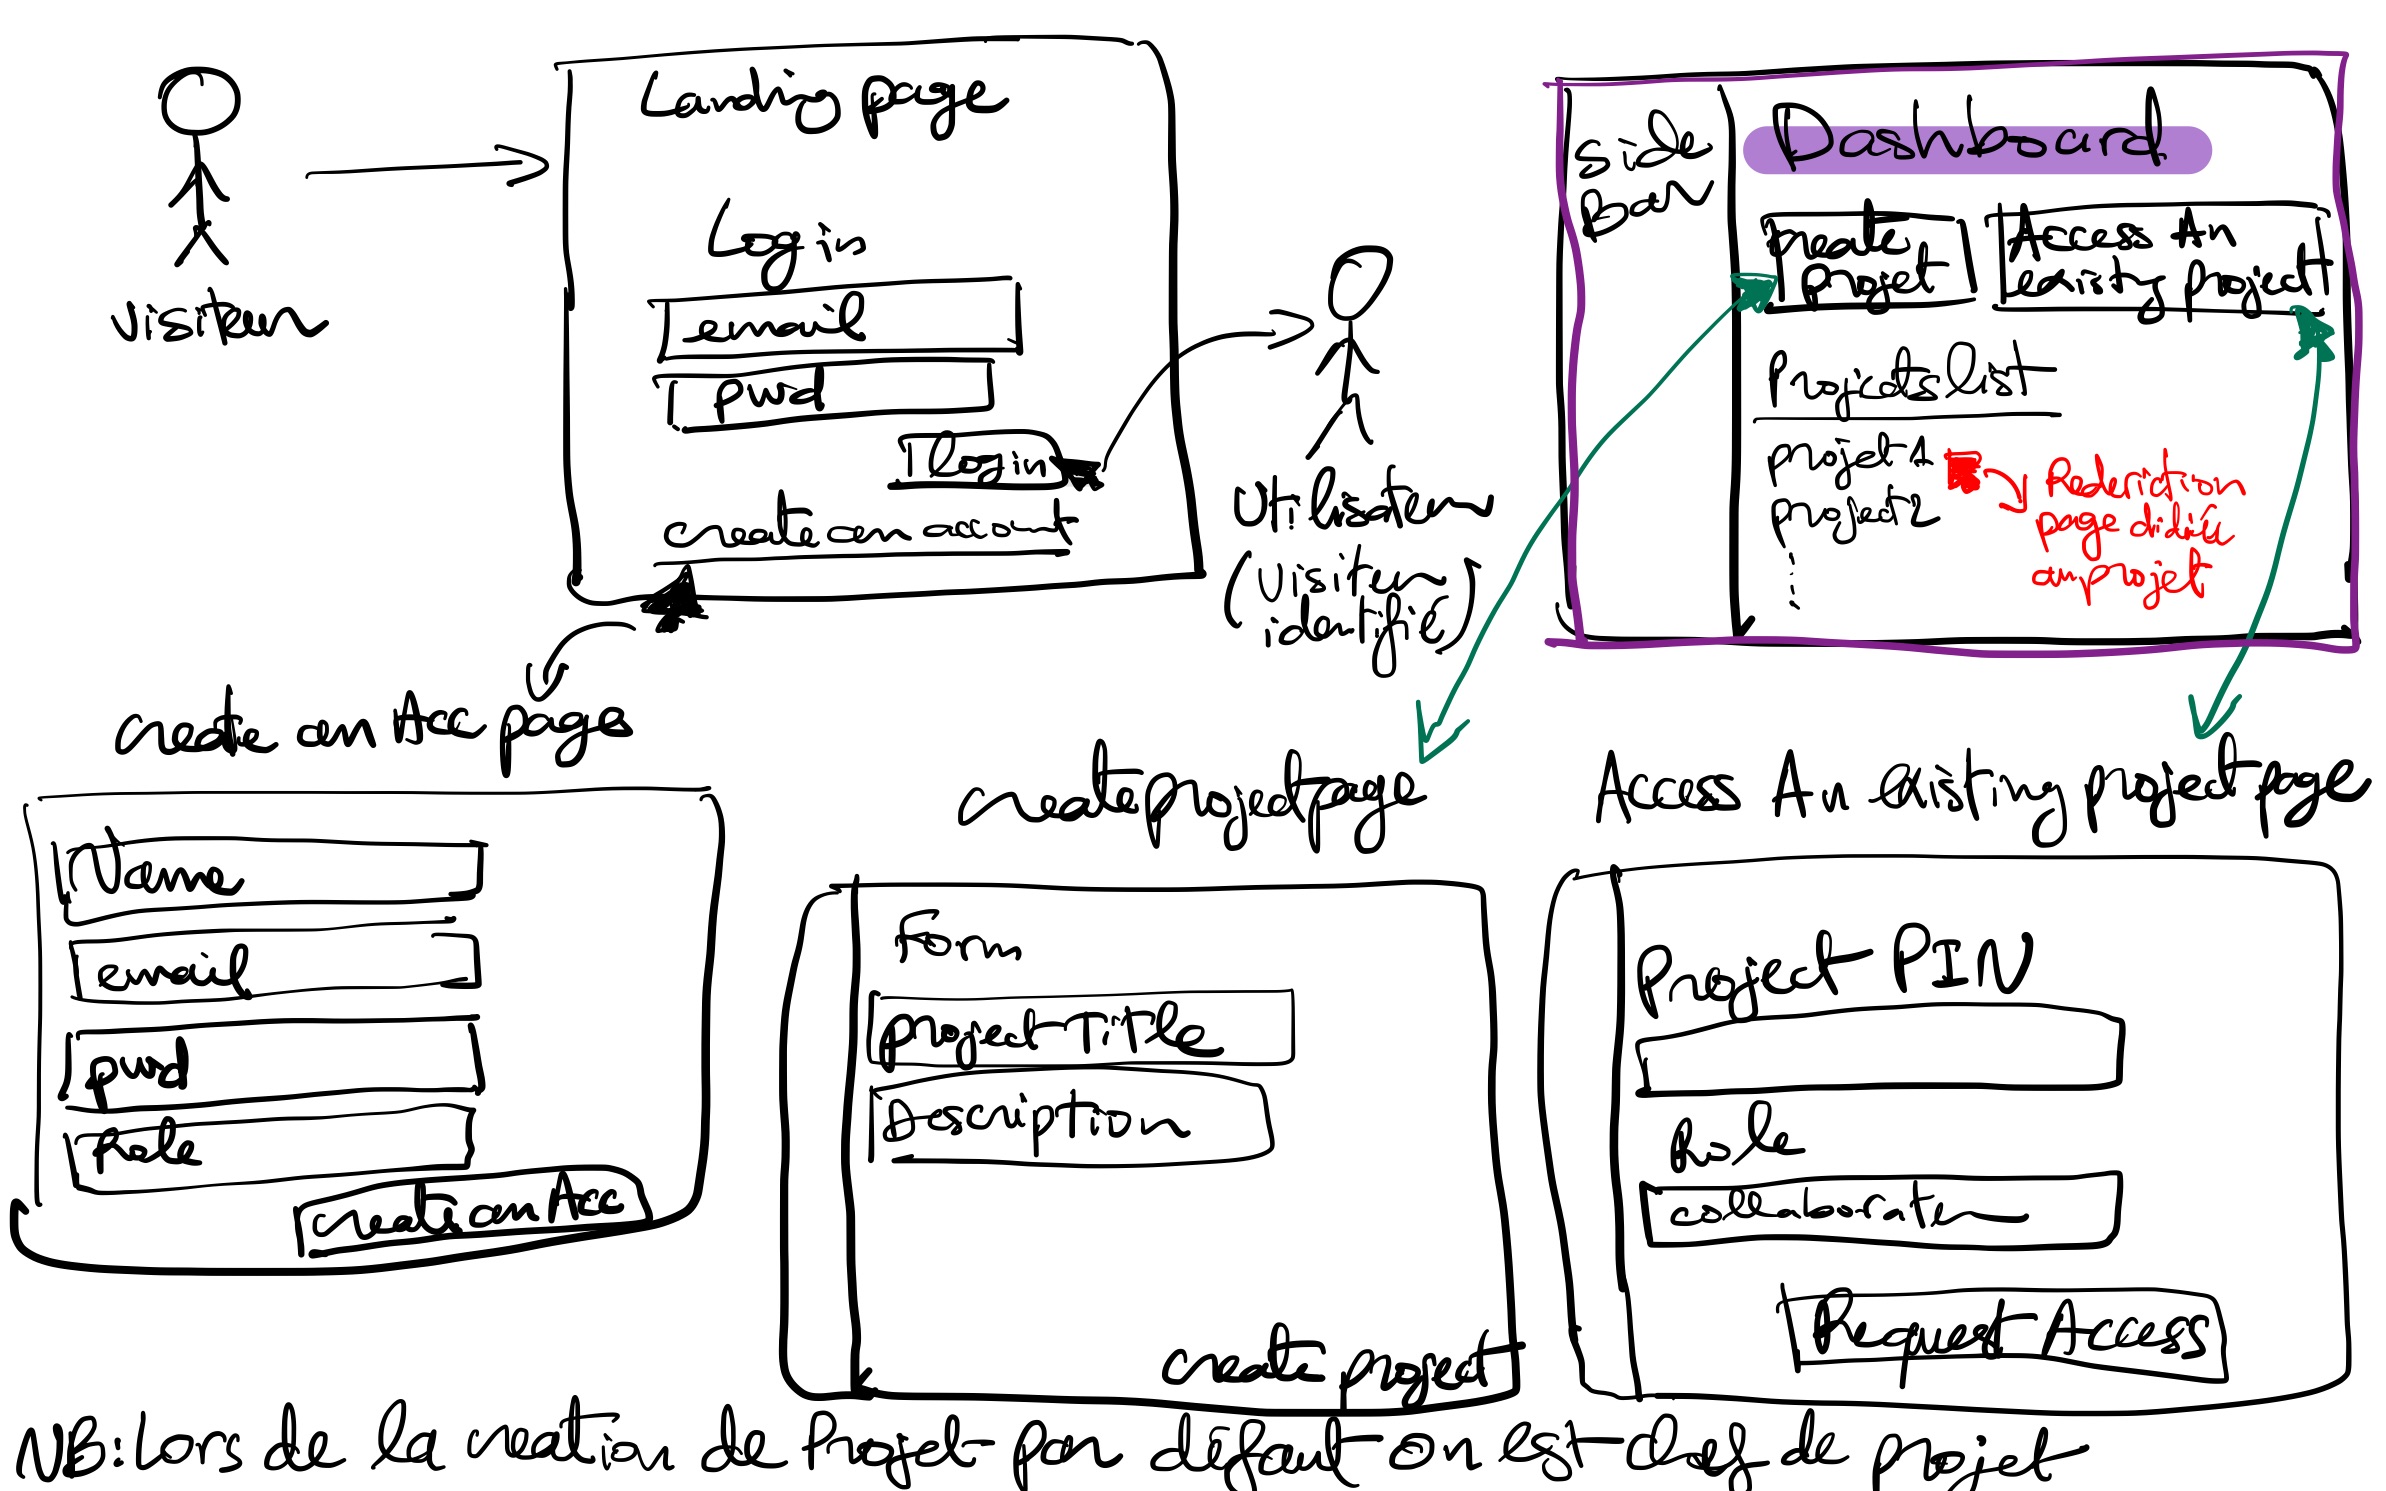 Visiteur
Landing page
Login
email
pwd
login
create an account
Utilisateur
(Visiteur
identifié)
side
Bar
Dashboard
create
projet
Access An
existing project
Projects list
projet 1
project 2
Redirection
page dédiée
au projet
create an Acc pages
Name
email
pwd
Role
create an Acc
create project page
Form
project Title
Description
create project
Access An existing project page
Project PIN
Role
Request Access
NB: Lors de la creation de Projet par défaut on est chef de projet